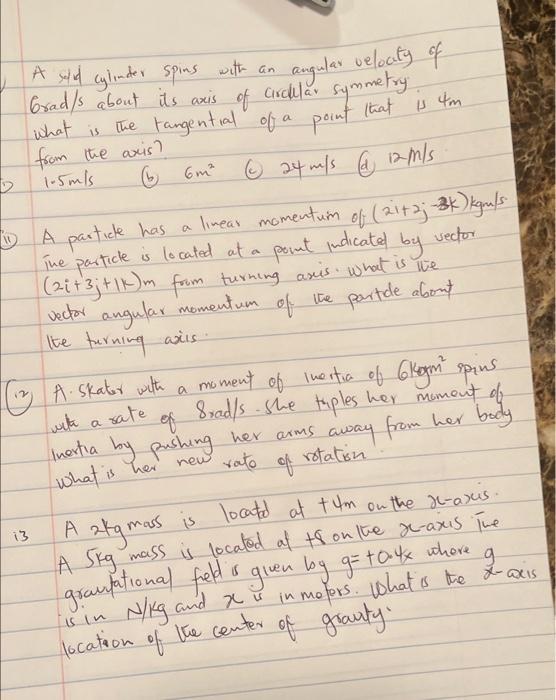 A solid cylinder spins with an angular velocity of
6rad/s about its axis of circular symmetry
what is the tangential of a point that is 4m
from the axis?
1.5m/s (b) 6m² (c) 24 m/s (d) 12 m/s
11 A particle has a linear momentum of (2i+2j-3k) kgm/s
The particle is located at a point indicated by vector
(2i+3j+1k)m from turning axis. What is the
vector angular momentum of the partcle about
the turning axis.
12 A. skater with a moment of inertia of 6kgm² spins
with a rate of 8rad/s. She triples her moment of
inertia by pushing her arms away from her body
what is her new rate of rotation
13 A 2kg mass is located at +4m on the x-axis.
A 5kg mass is located at +8 on the x-axis The
gravitational field is given by g=+0.4x where g
is in N/kg and x is in meters. What is the x-axis
location of the center of gravity.